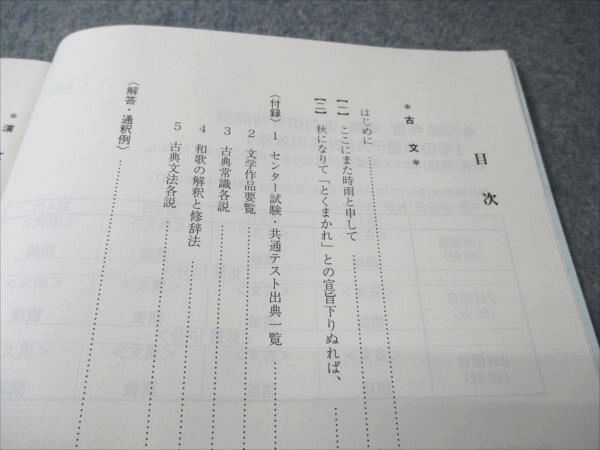 目次
＊古文＊
はじめに
【一】 ここにまた時雨と申して
【二】 秋になりて「とくまかれ」との宣旨下りぬれば、
〈付録〉 1 センター試験・共通テスト出典一覧
2 文学作品要覧
3 古典常識各説
4 和歌の解釈と修辞法
5 古典文法各説
〈解答・通釈例〉
＊漢